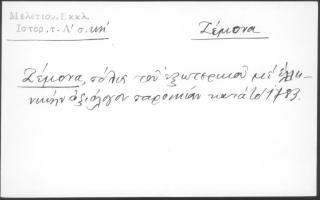 Μελετίου, Εκκλ.
Ιστορ, τ. Λ' σ. κη'
Ζέμονα
Ζέμονα, πόλις τοῦ ἐξωτερικοῦ μέ ἑλλη-
νικήν ἀξιόλογον παροικίαν κατά τό 1783.